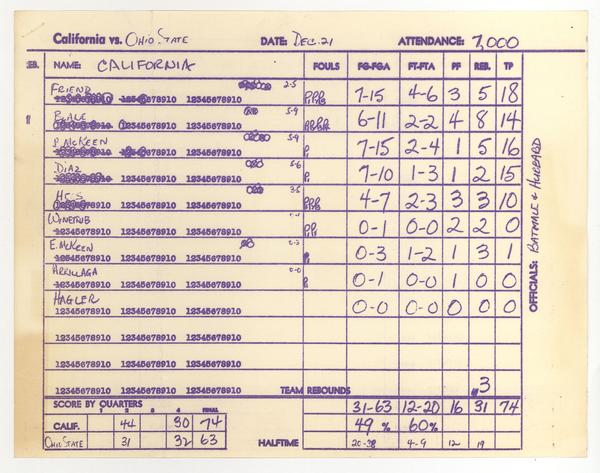 California vs. OHIO STATE DATE: DEC. 21 ATTENDANCE: 7,000
NAME: CALIFORNIA FOULS FG-FGA FT-FTA PF REB. TP
FRIEND 2-5 7-15 4-6 3 5 18
12345678910 12345678910 12345678910
5-9 6-11 2-2 4 8 14
12345678910 12345678910 12345678910
P. MCKEEN 5-9 P 7-15 2-4 1 5 16
12345678910 12345678910 12345678910
DIAZ 5-6 P 7-10 1-3 1 2 15
12345678910 12345678910 12345678910
3-5 4-7 2-3 3 3 10
12345678910 12345678910 12345678910
0-1 0-0 2 2 0
12345678910 12345678910 12345678910
E. MCKEEN 0-3 P 0-3 1-2 1 3 1
12345678910 12345678910 12345678910
ARRILLAGA 0-0 P 0-1 0-0 1 0 0
12345678910 12345678910 12345678910
HAGLER 0-0 0-0 0 0 0
12345678910 12345678910 12345678910
12345678910 12345678910 12345678910
12345678910 12345678910 12345678910
12345678910 12345678910 12345678910 TEAM REBOUNDS 3
SCORE BY QUARTERS 31-63 12-20 16 31 74
1 2 3 4 FINAL
CALIF. 44 30 74 49 % 60 %
OHIO STATE 31 32 63 HALFTIME 20-38 4-9 12 19
OFFICIALS: BATMALE & HUBBARD